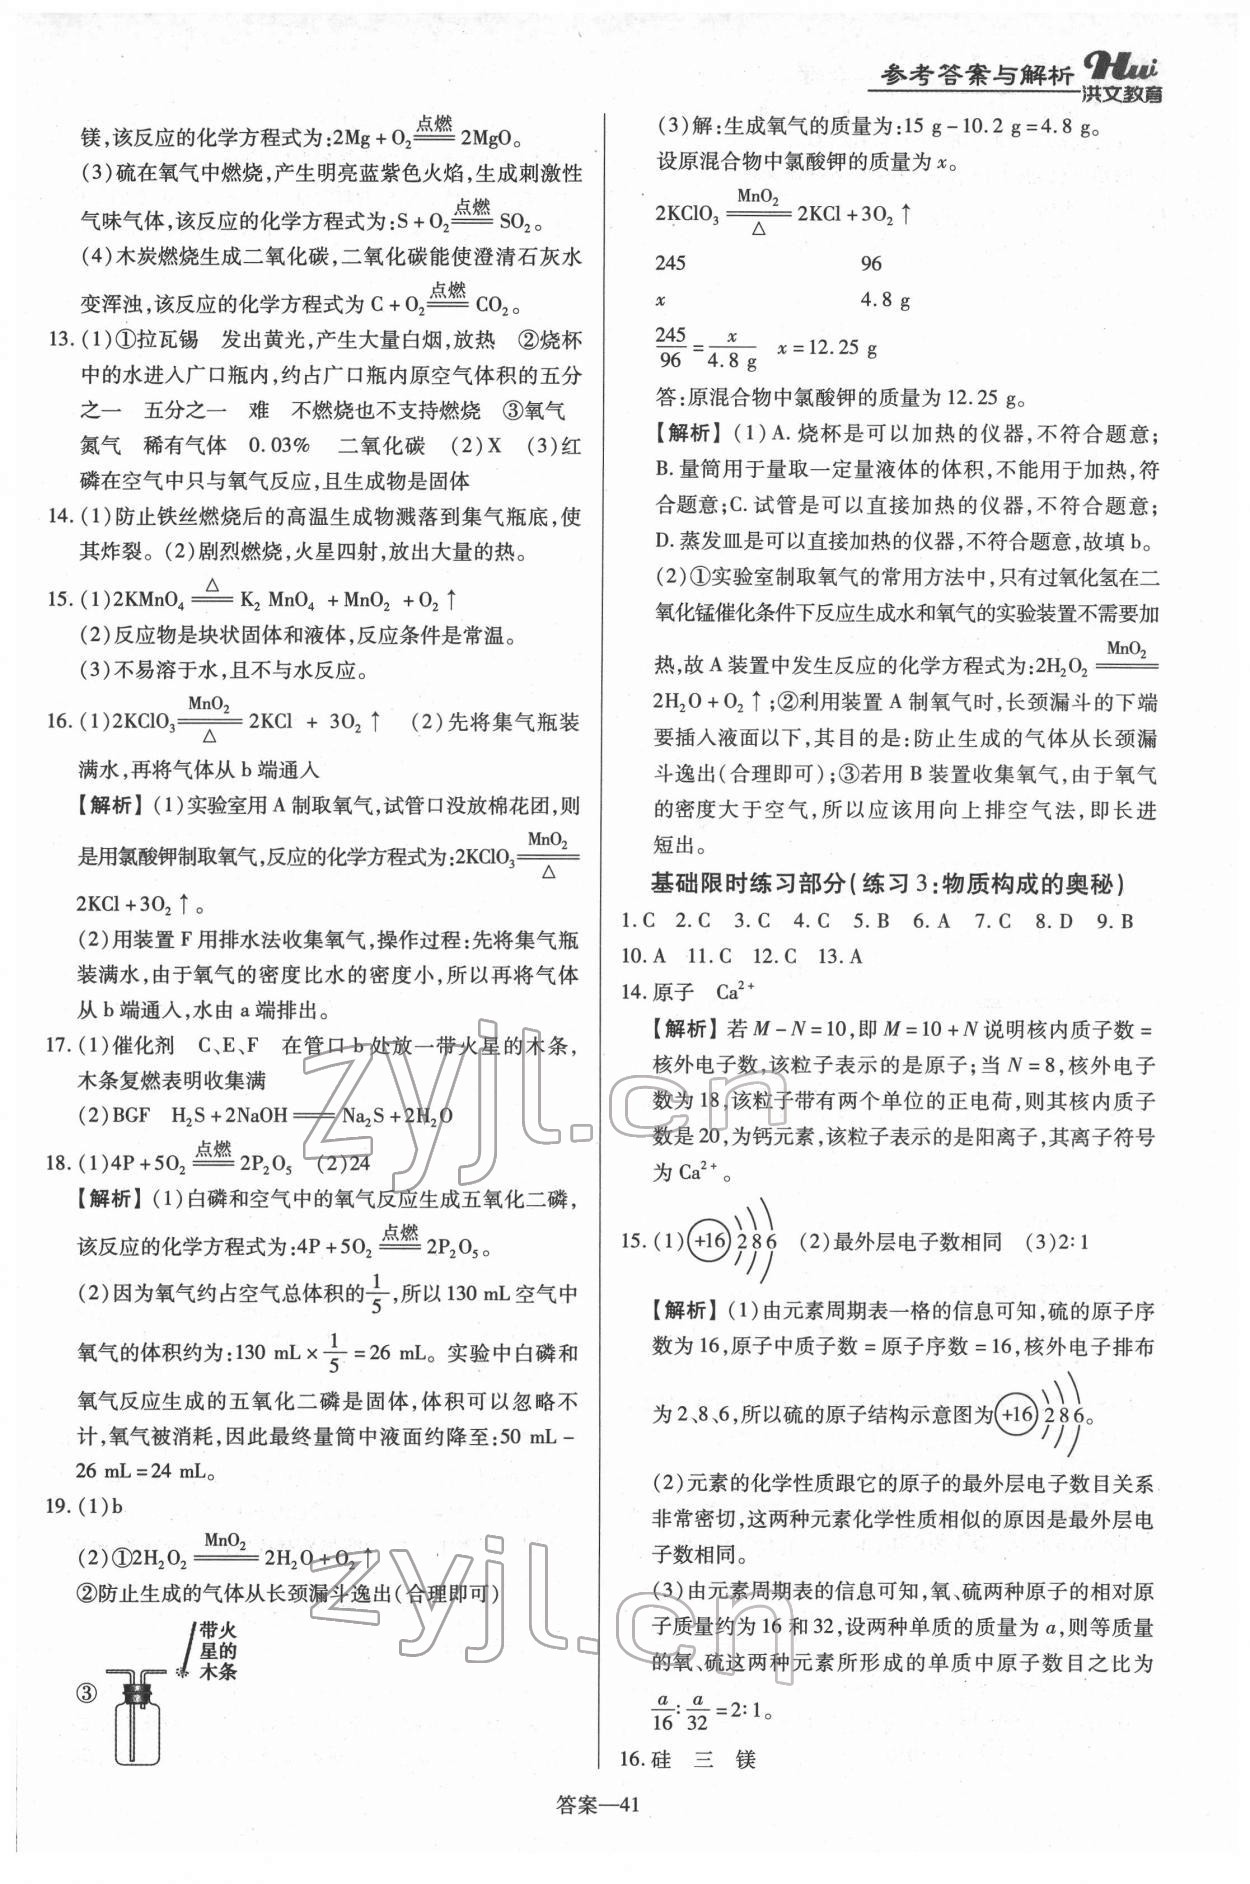 参考答案与解析
Hwi
洪文教育
镁,该反应的化学方程式为:2Mg + O₂ 点燃═ 2MgO。
(3)硫在氧气中燃烧,产生明亮蓝紫色火焰,生成刺激性
气味气体,该反应的化学方程式为:S + O₂ 点燃═ SO₂。
(4)木炭燃烧生成二氧化碳,二氧化碳能使澄清石灰水
变浑浊,该反应的化学方程式为 C + O₂ 点燃═ CO₂。
13. (1)①拉瓦锡 发出黄光,产生大量白烟,放热 ②烧杯
中的水进入广口瓶内,约占广口瓶内原空气体积的五分
之一 五分之一 难 不燃烧也不支持燃烧 ③氧气
氮气 稀有气体 0.03% 二氧化碳 (2)X (3)红
磷在空气中只与氧气反应,且生成物是固体
14. (1)防止铁丝燃烧后的高温生成物溅落到集气瓶底,使
其炸裂。(2)剧烈燃烧,火星四射,放出大量的热。
15. (1)2KMnO₄ △═ K₂ MnO₄ + MnO₂ + O₂↑
(2)反应物是块状固体和液体,反应条件是常温。
(3)不易溶于水,且不与水反应。
16. (1)2KClO₃ MnO₂═△ 2KCl + 3O₂↑ (2)先将集气瓶装
满水,再将气体从 b 端通入
【解析】(1)实验室用 A 制取氧气,试管口没放棉花团,则
是用氯酸钾制取氧气,反应的化学方程式为:2KClO₃ MnO₂═△
2KCl + 3O₂↑。
(2)用装置 F 用排水法收集氧气,操作过程:先将集气瓶
装满水,由于氧气的密度比水的密度小,所以再将气体
从 b 端通入,水由 a 端排出。
17. (1)催化剂 C、E、F 在管口 b 处放一带火星的木条,
木条复燃表明收集满
(2)BGF H₂S + 2NaOH ═ Na₂S + 2H₂O
18. (1)4P + 5O₂ 点燃═ 2P₂O₅ (2)24
【解析】(1)白磷和空气中的氧气反应生成五氧化二磷,
该反应的化学方程式为:4P + 5O₂ 点燃═ 2P₂O₅。
(2)因为氧气约占空气总体积的1/5,所以 130 mL 空气中
氧气的体积约为:130 mL × 1/5 = 26 mL。实验中白磷和
氧气反应生成的五氧化二磷是固体,体积可以忽略不
计,氧气被消耗,因此最终量筒中液面约降至:50 mL −
26 mL = 24 mL。
19. (1)b
(2)①2H₂O₂ MnO₂═ 2H₂O + O₂↑
②防止生成的气体从长颈漏斗逸出(合理即可)
③
带火
星的
木条
(3)解:生成氧气的质量为:15 g − 10.2 g = 4.8 g。
设原混合物中氯酸钾的质量为 x。
2KClO₃ MnO₂═△ 2KCl + 3O₂↑
245 96
x 4.8 g
245/96 = x/4.8 g x = 12.25 g
答:原混合物中氯酸钾的质量为 12.25 g。
【解析】(1)A. 烧杯是可以加热的仪器,不符合题意;
B. 量筒用于量取一定量液体的体积,不能用于加热,符
合题意;C. 试管是可以直接加热的仪器,不符合题意;
D. 蒸发皿是可以直接加热的仪器,不符合题意,故填 b。
(2)①实验室制取氧气的常用方法中,只有过氧化氢在二
氧化锰催化条件下反应生成水和氧气的实验装置不需要加
热,故 A 装置中发生反应的化学方程式为:2H₂O₂ MnO₂═
2H₂O + O₂↑;②利用装置 A 制氧气时,长颈漏斗的下端
要插入液面以下,其目的是:防止生成的气体从长颈漏
斗逸出(合理即可);③若用 B 装置收集氧气,由于氧气
的密度大于空气,所以应该用向上排空气法,即长进
短出。
基础限时练习部分(练习3:物质构成的奥秘)
1. C 2. C 3. C 4. C 5. B 6. A 7. C 8. D 9. B
10. A 11. C 12. C 13. A
14. 原子 Ca²⁺
【解析】若 M − N = 10,即 M = 10 + N 说明核内质子数 =
核外电子数,该粒子表示的是原子;当 N = 8,核外电子
数为 18,该粒子带有两个单位的正电荷,则其核内质子
数是 20,为钙元素,该粒子表示的是阳离子,其离子符号
为 Ca²⁺。
15. (1) +16 2 8 6 (2)最外层电子数相同 (3)2∶1
【解析】(1)由元素周期表一格的信息可知,硫的原子序
数为 16,原子中质子数 = 原子序数 = 16,核外电子排布
为 2、8、6,所以硫的原子结构示意图为 +16 2 8 6。
(2)元素的化学性质跟它的原子的最外层电子数目关系
非常密切,这两种元素化学性质相似的原因是最外层电
子数相同。
(3)由元素周期表的信息可知,氧、硫两种原子的相对原
子质量约为 16 和 32,设两种单质的质量为 a,则等质量
的氧、硫这两种元素所形成的单质中原子数目之比为
a/16 : a/32 = 2∶1。
16. 硅 三 镁
答案—41
zyjl.cn
zyjl.cn